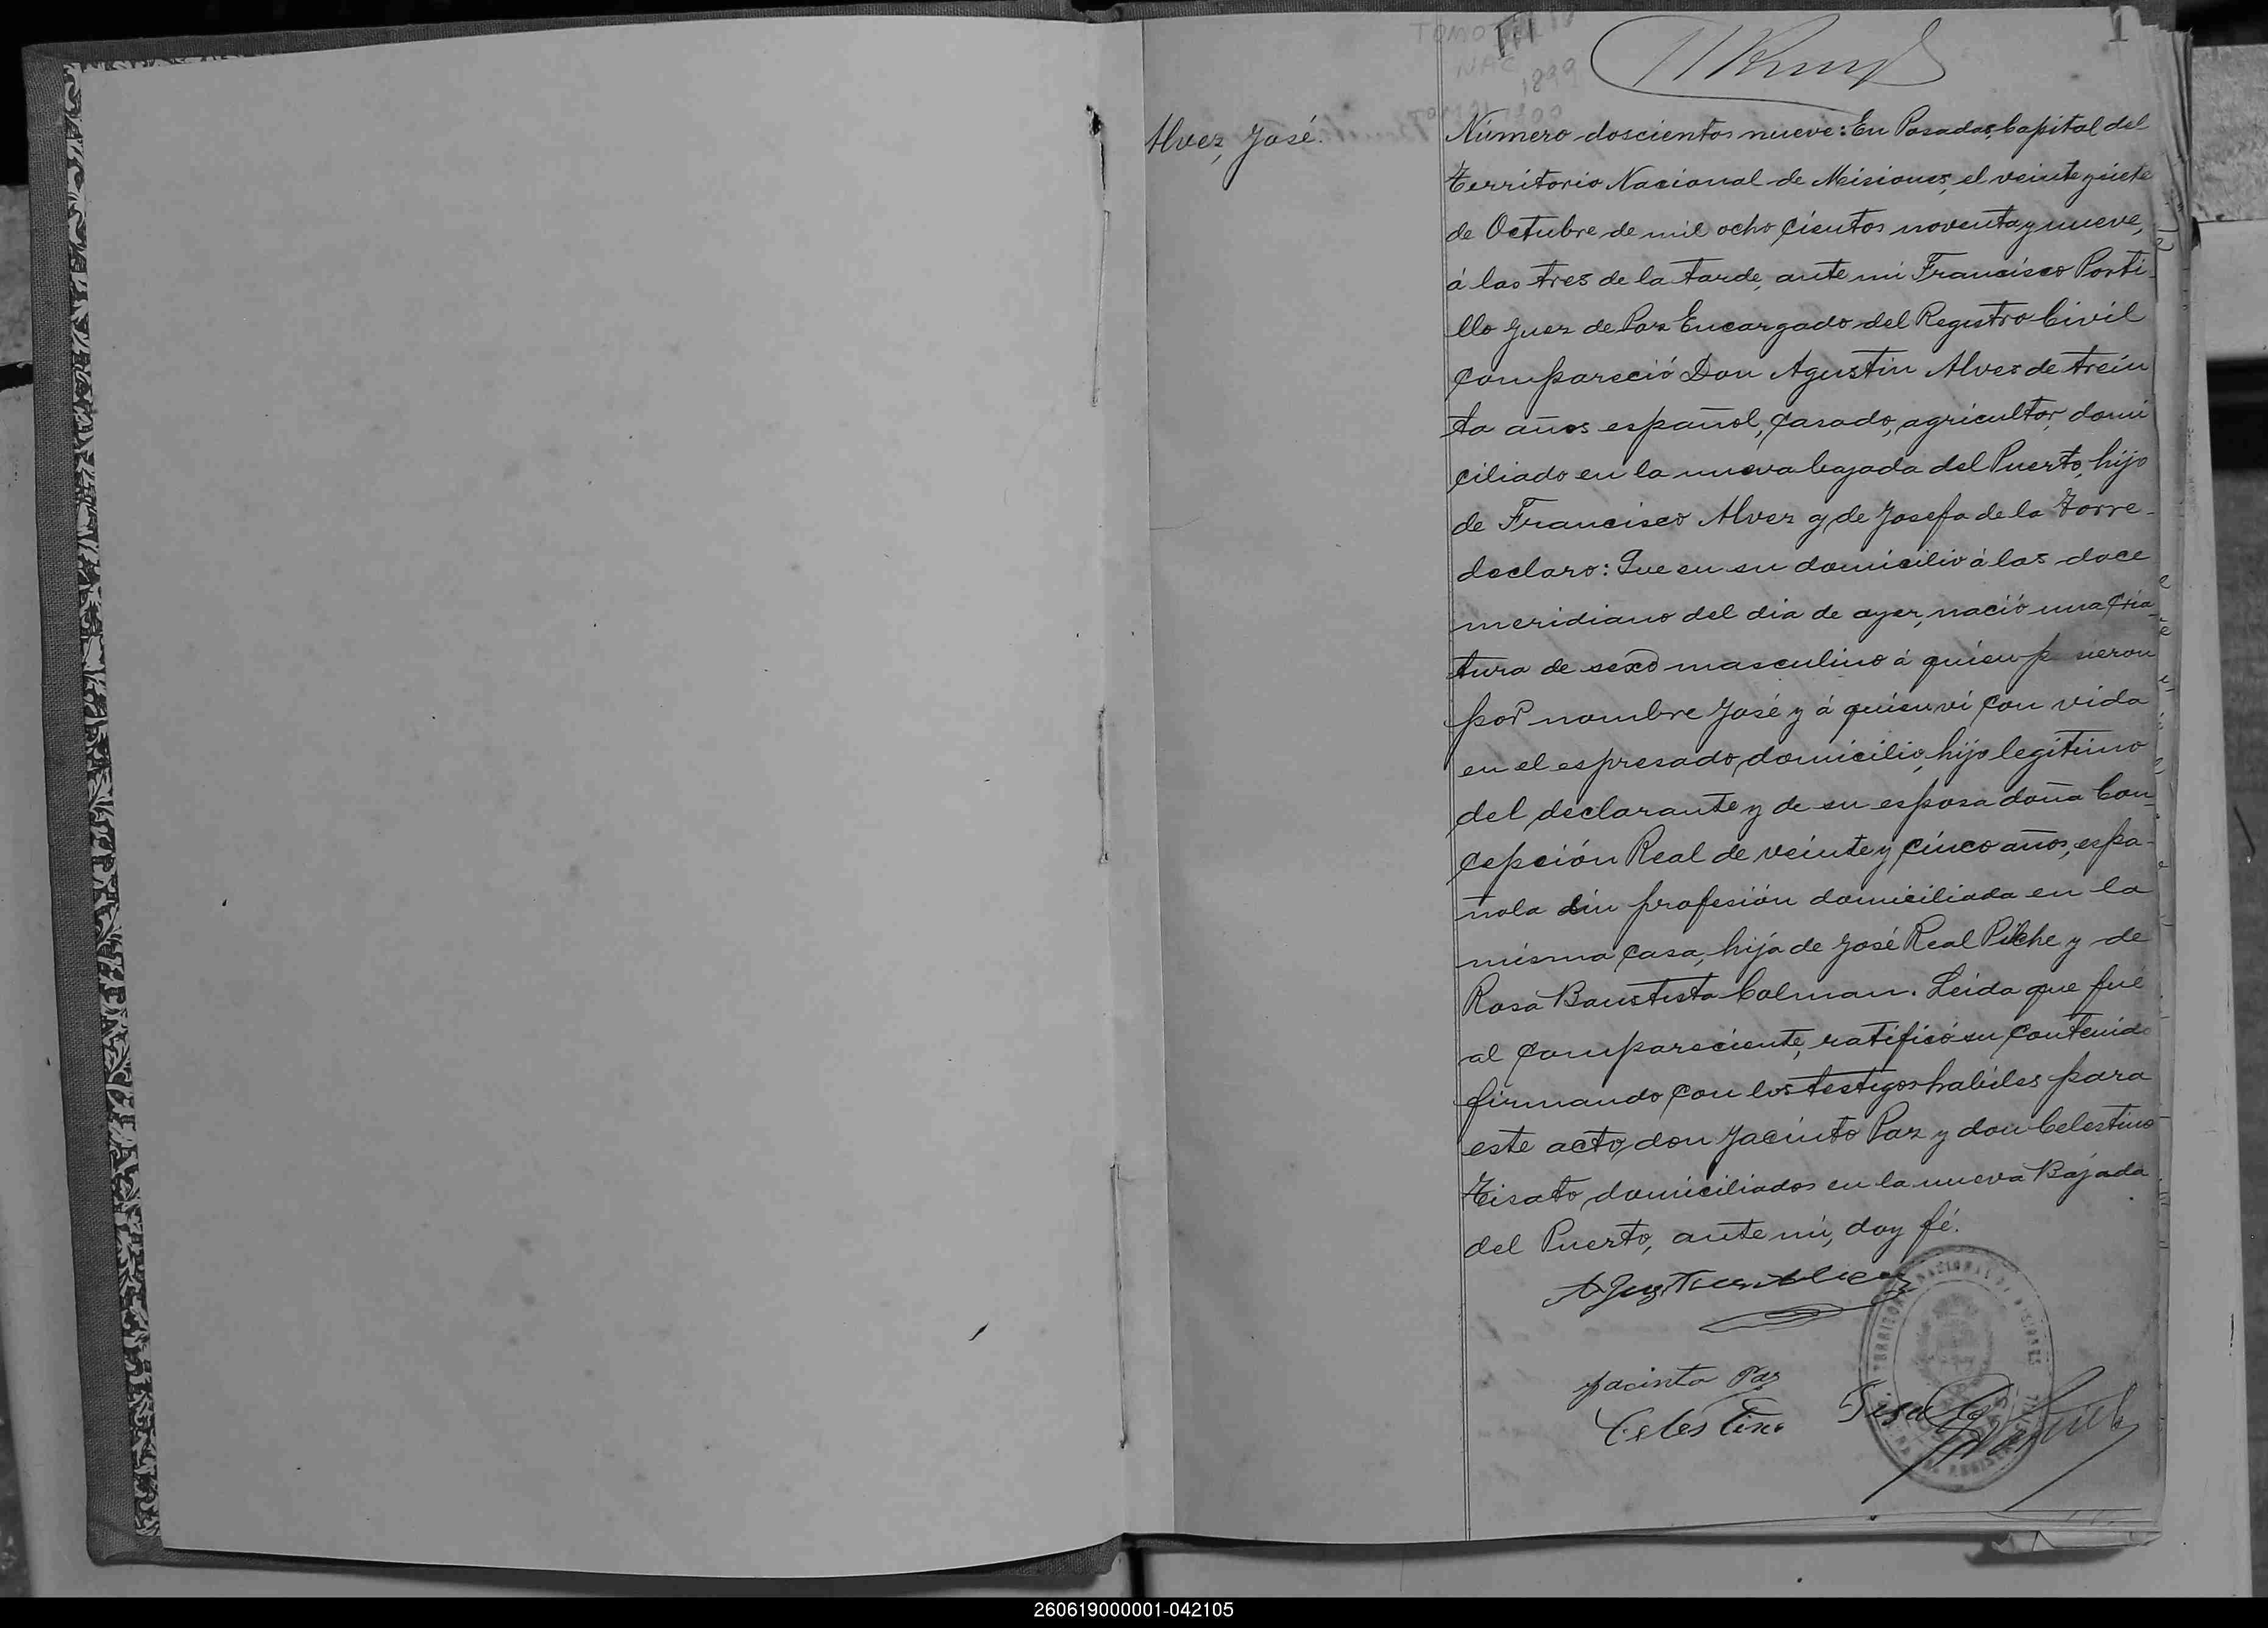 TOMO III
NAC
1899
1
Alvez, José.
Número doscientos nueve: En Posadas, Capital del
Territorio Nacional de Misiones, el veinte y siete
de Octubre de mil ocho cientos noventa y nueve,
á las tres de la tarde, ante mi Francisco Porti-
llo Juez de Paz Encargado del Registro Civil
compareció Don Agustin Alves de trein
ta años español, casado, agricultor, domi
ciliado en la nueva bajada del Puerto, hijo
de Francisco Alvez y de Josefa de la Torre-
declaro: Que en su domicilio á las doce
meridiano del dia de ayer, nació una cria-
tura de sexo masculino á quien p sieron
por nombre José y á quien ví con vida
en el espresado domicilio, hijo legítimo
del declarante y de su esposa doña Con-
cepción Real de veinte y cinco años, espa-
ñola sin profesión domiciliada en la
misma casa, hija de José Real Pilche y de
Rosa Bautista Colman. Leida que fué
al compareciente, ratificó su contenido
firmando con los testigos habiles para
este acto, don Jacinto Paz y don Celestino
Tisato, domiciliados en la nueva Bajada
del Puerto, ante mí, doy fé.
Agustin Alvez
Jacinto Paz
Celestino Tisato
TERRITORIO NACIONAL DE MISIONES
260619000001-042105